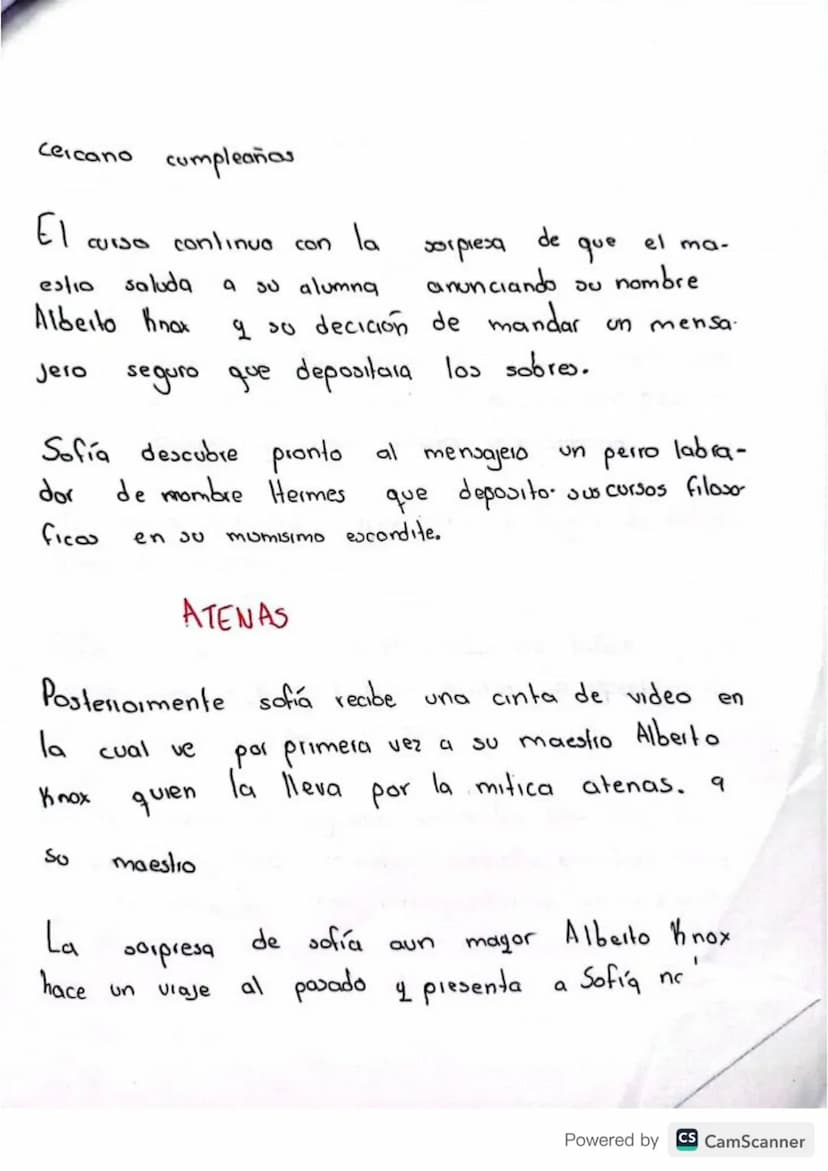 cercano cumpleaños
El curso continuo con la sorpresa de que el ma-
estro saluda a su alumna anunciando su nombre
Alberto Knox y su decición de mandar un mensa-
jero seguro que depositara los sobres.
Sofía descubre pronto al mensajero un perro labra-
dor de nombre Hermes que deposito sus cursos filoso
ficos en su mumisimo escordite.
ATENAS
Posteriormente sofía recibe una cinta de video en
la cual ve por primera vez a su maestro Alberto
Knox quien la lleva por la mitica atenas. a
su maestro
La sorpresa de sofía aun mayor Alberto Knox
hace un viaje al pasado y presenta a Sofía
Powered by CS CamScanner